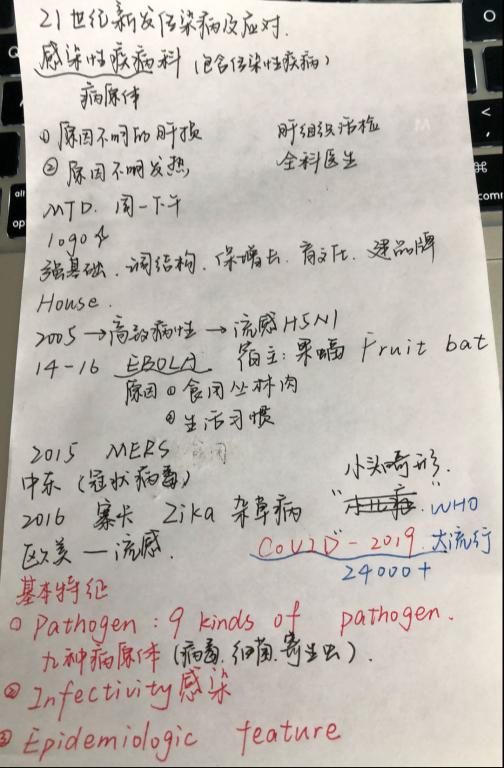 21世纪新发传染病及应对.
感染性疾病科 (包含传染性疾病)
病原体
① 原因不明的肝损 肝组织活检
② 原因不明发热 全科医生
MTD. 周一下午
logo
强基础. 调结构. 保增长. 育文化. 建品牌
House.
2005 → 高致病性 → 流感H5N1
14-16 EBOLA 宿主: 果蝠 Fruit bat
原因 ① 食用丛林肉
② 生活习惯
2015 MERS
中东 (冠状病毒) 小头畸形.
2016 寨卡 Zika 杂草病 WHO
区欠美 — 流感. COVID-2019 大流行
24000+
基本特征
① Pathogen: 9 kinds of pathogen.
九种病原体 (病毒.细菌.寄生虫).
② Infectivity 感染
③ Epidemiologic feature